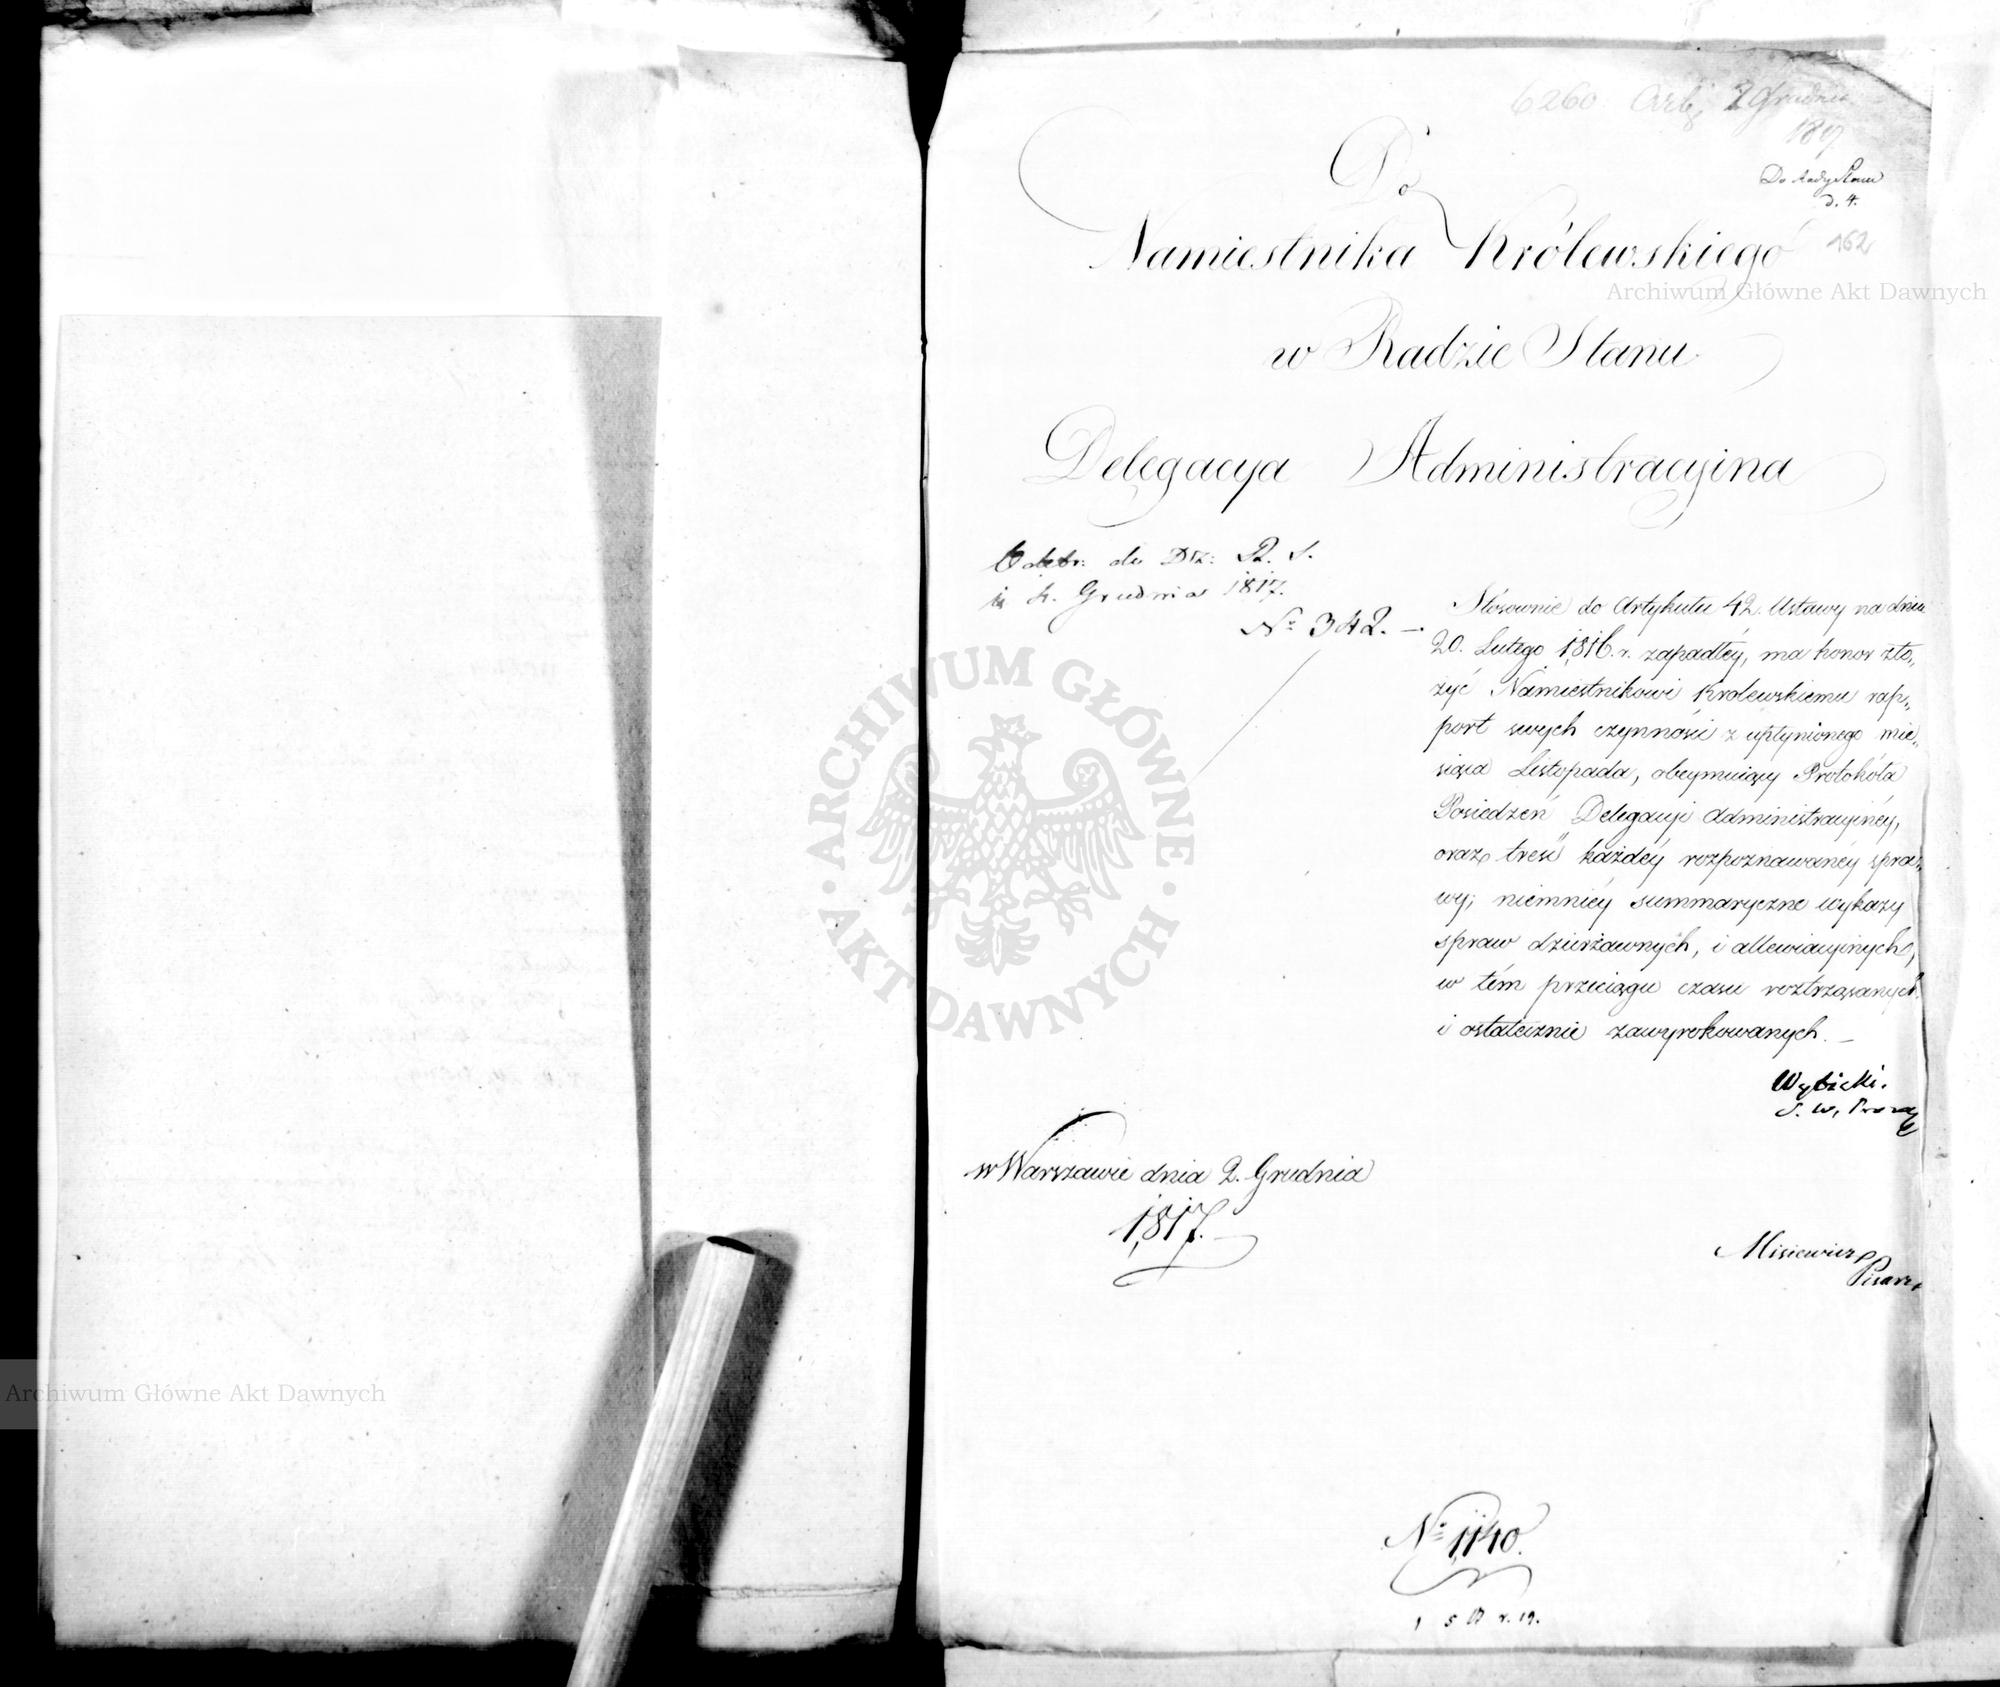 6260 2 Grudnia
1817
Do Rady Stanu
d. 4.
162
Archiwum Główne Akt Dawnych
Do
Namiestnika Królewskiego
w Radzie Stanu
Delegacya Administracyina
Odebr: do Dz: R. S.
4. Grudnia 1817.
Nº 342. —
Stosownie do Artykułu 42. Ustawy na dniu
20. Lutego 1816. r. zapadłéy, ma honor zło„
żyć Namiestnikowi Królewskiemu rap„
port swych czynności z upłynionego mie„
siąca Listopada, obeymuiący Protokóła
Posiedzeń Delegacyi Administracyinéy,
oraz treść każdéy rozpoznawanéy spra„
wy; niemniéy summaryczne wykazy
spraw dzierżawnych, i allewiacyinych,
w tém przeciągu czasu roztrząsanych
i ostatecznie zawyrokowanych. —
Wybicki.
S. W. Prezy
w Warszawie dnia 2. Grudnia
1817.
Misiewicz
Pisarz
Nº 1140.
ARCHIWUM GŁÓWNE · AKT DAWNYCH ·
Archiwum Główne Akt Dawnych